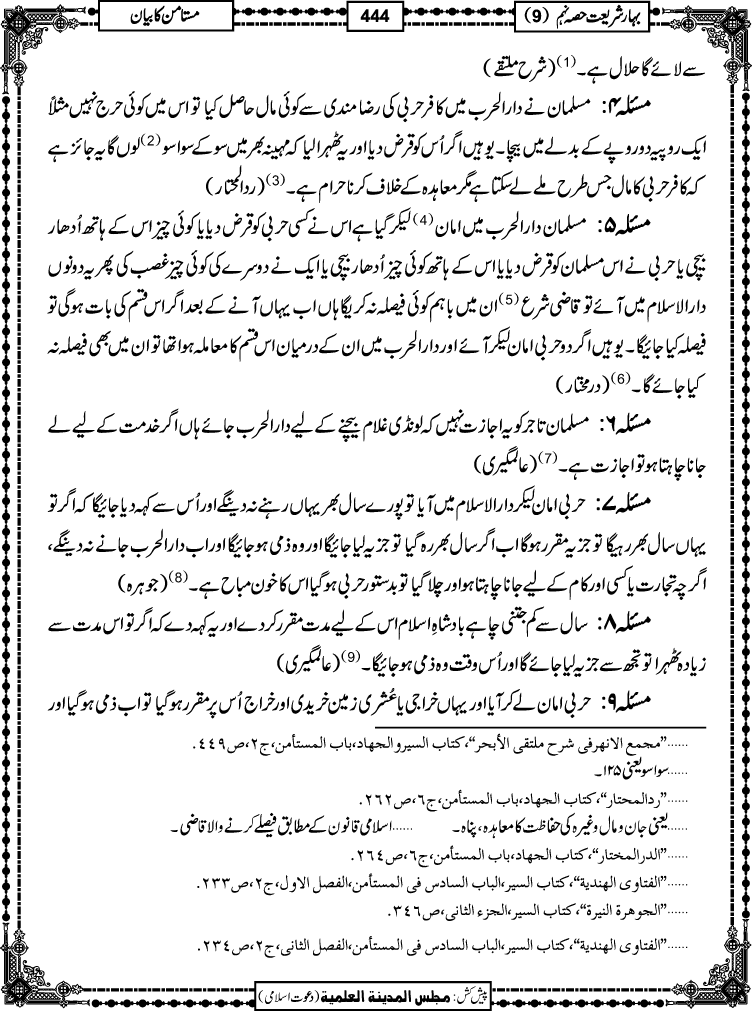 بہار شریعت حصہ نہم (9)
444
مستامن کا بیان
سے لائے گا حلال ہے۔(1) (شرح ملتقے)
مسئلہ ۴: مسلمان نے دارالحرب میں کافر حربی کی رضا مندی سے کوئی مال حاصل کیا تو اس میں کوئی حرج نہیں مثلاً
ایک روپیہ دو روپے کے بدلے میں بیچا۔ یوہیں اگر اُس کو قرض دیا اور یہ ٹھہرا لیا کہ مہینہ بھر میں سو کے سوا سو(2) لوں گا یہ جائز ہے
کہ کافر حربی کا مال جس طرح ملے لے سکتا ہے مگر معاہدہ کے خلاف کرنا حرام ہے۔(3) (ردالمحتار)
مسئلہ ۵: مسلمان دارالحرب میں امان(4) لیکر گیا ہے اس نے کسی حربی کو قرض دیا یا کوئی چیز اس کے ہاتھ اُدھار
بیچی یا حربی نے اس مسلمان کو قرض دیا یا اس کے ہاتھ کوئی چیز اُدھار بیچی یا ایک نے دوسرے کی کوئی چیز غصب کی پھر یہ دونوں
دارالاسلام میں آئے تو قاضی شرع(5) ان میں باہم کوئی فیصلہ نہ کریگا ہاں اب یہاں آنے کے بعد اگر اس قسم کی بات ہوگی تو
فیصلہ کیا جائیگا۔ یوہیں اگر دو حربی امان لیکر آئے اور دارالحرب میں ان کے درمیان اس قسم کا معاملہ ہوا تھا تو ان میں بھی فیصلہ نہ
کیا جائے گا۔(6) (درمختار)
مسئلہ ۶: مسلمان تاجر کو یہ اجازت نہیں کہ لونڈی غلام بیچنے کے لیے دارالحرب جائے ہاں اگر خدمت کے لیے لے
جانا چاہتا ہو تو اجازت ہے۔(7) (عالمگیری)
مسئلہ ۷: حربی امان لیکر دارالاسلام میں آیا تو پورے سال بھر یہاں رہنے نہ دینگے اور اُس سے کہہ دیا جائیگا کہ اگر تو
یہاں سال بھر رہیگا تو جزیہ مقرر ہوگا اب اگر سال بھر رہ گیا تو جزیہ لیا جائیگا اور وہ ذمی ہو جائیگا اور اب دارالحرب جانے نہ دینگے،
اگرچہ تجارت یا کسی اور کام کے لیے جانا چاہتا ہو اور چلا گیا تو بدستور حربی ہوگیا اس کا خون مباح ہے۔(8) (جوہرہ)
مسئلہ ۸: سال سے کم جتنی چاہے بادشاہِ اسلام اس کے لیے مدت مقرر کر دے اور یہ کہہ دے کہ اگر تو اس مدت سے
زیادہ ٹھہرا تو تجھ سے جزیہ لیا جائے گا اور اُس وقت وہ ذمی ہو جائیگا۔(9) (عالمگیری)
مسئلہ ۹: حربی امان لے کر آیا اور یہاں خراجی یا عُشری زمین خریدی اور خراج اُس پر مقرر ہوگیا تو اب ذمی ہوگیا اور
......”مجمع الانهرفی شرح ملتقی الأبحر“،کتاب السیروالجهاد،باب المستأمن،ج۲،ص۴۴۹.
......سوا سو یعنی ۱۲۵۔
......”ردالمحتار“،کتاب الجهاد،باب المستأمن،ج۶،ص۲۶۲.
......یعنی جان و مال وغیرہ کی حفاظت کا معاہدہ، پناہ۔ ......اسلامی قانون کے مطابق فیصلے کرنے والا قاضی۔
......”الدرالمختار“،کتاب الجهاد،باب المستأمن،ج۶،ص۲۶۴.
......”الفتاوی الهندیة“،کتاب السیر،الباب السادس فی المستأمن،الفصل الاول،ج۲،ص۲۳۳.
......”الجوهرة النیرة“،کتاب السیر،الجزء الثانی،ص۳۴۶.
......”الفتاوی الهندیة“،کتاب السیر،الباب السادس فی المستأمن،الفصل الثانی،ج۲،ص۲۳۴.
پیش کش: مجلس المدینة العلمیة (دعوت اسلامی)